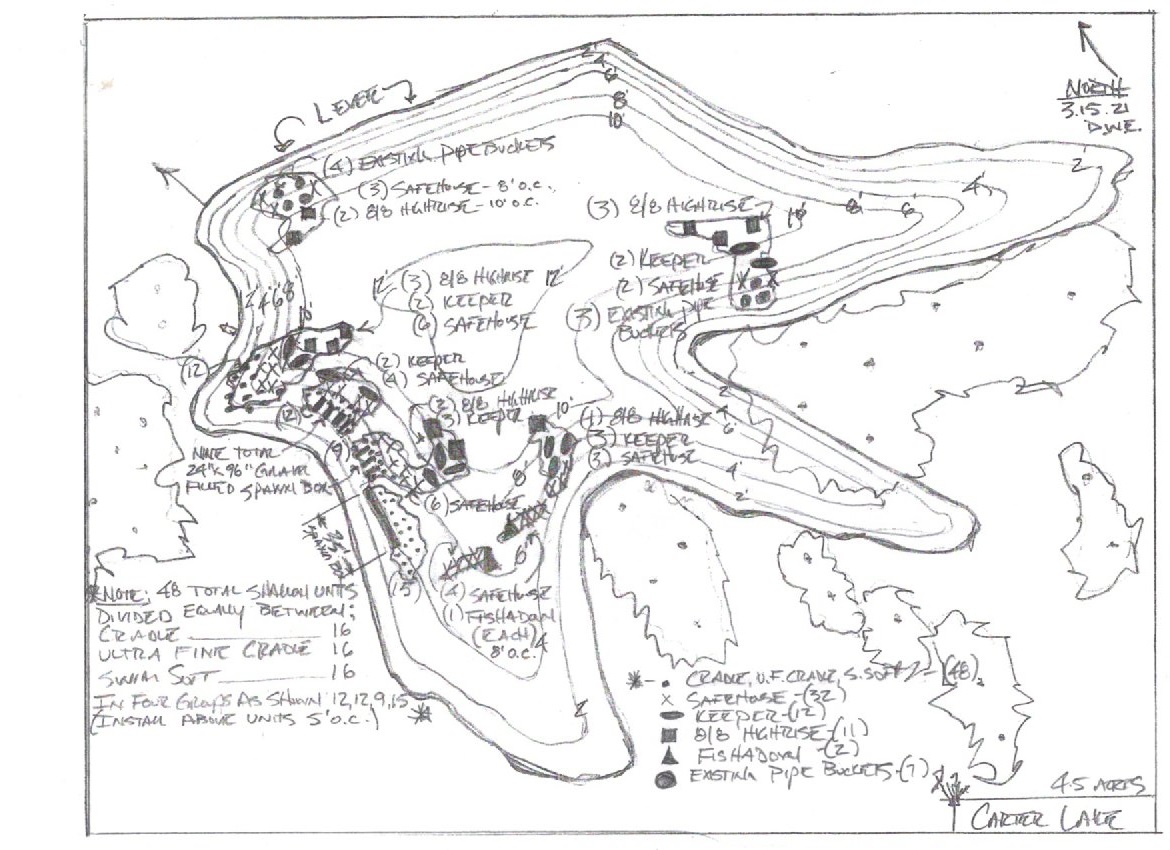 NORTH
3.15.21
D.W.E.
LEVEE
2'
4'
6'
8'
10'
(4) EXISTING PIPE BUCKETS
(3) SAFEHOUSE - 8' O.C.
(2) 8/8 HIGHRISE - 10' O.C.
2'
4'
6'
8'
10'
(3) 8/8 HIGHRISE
(2) KEEPER
(2) SAFEHOUSE
(3) EXISTING PIPE
BUCKETS
12'
(3) 8/8 HIGHRISE
12'
(2) KEEPER
(6) SAFEHOUSE
2 4 6 8
10'
(12)
(2) KEEPER
(4) SAFEHOUSE
(12)
(2) 8/8 HIGHRISE
(3) KEEPER
10'
(1) 8/8 HIGHRISE
(3) KEEPER
(3) SAFEHOUSE
2'
4'
6'
4'
2'
(9)
NINE TOTAL
24" X 96" GRAVEL
FILLED SPAWN BOX
8'
(6) SAFEHOUSE
6'
(15)
(4) SAFEHOUSE
(1) FISHADOW
(EACH)
8' O.C.
4
2'
NOTE: 48 TOTAL SHALLOW UNITS
DIVIDED EQUALLY BETWEEN:
CRADLE 16
ULTRA FINE CRADLE 16
SWIM SOFT 16
IN FOUR GROUPS AS SHOWN 12,12,9,15
(INSTALL ABOVE UNITS 5' O.C.)
CRADLE, U.F. CRADLE, S. SOFT - (48)
SAFEHOUSE - (32)
KEEPER - (12)
8/8 HIGHRISE - (11)
FISHADOW - (2)
EXISTING PIPE BUCKETS - (7)
4.5 ACRES
CARTER LAKE